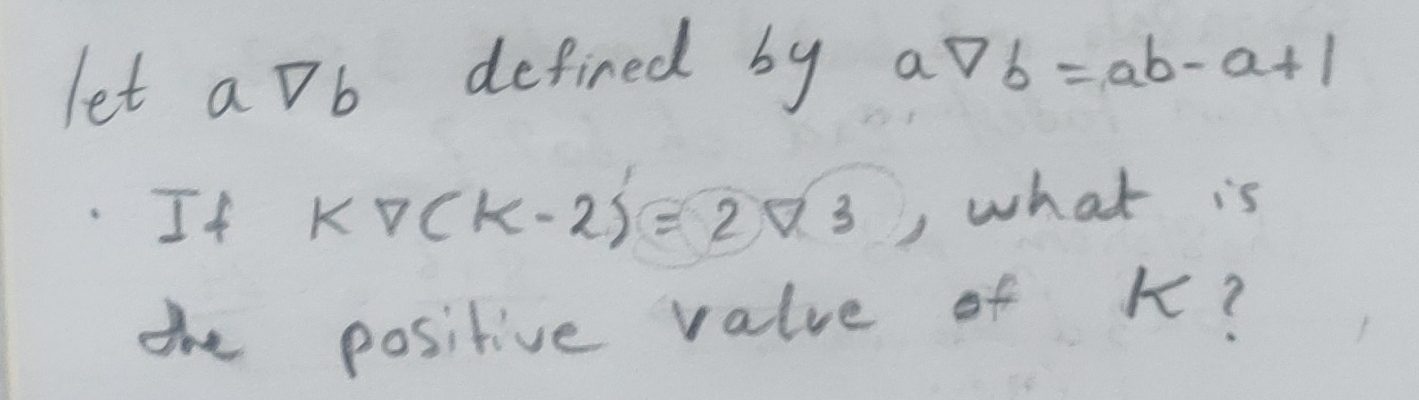 let a ∇ b defined by a ∇ b = ab - a + 1
. If K ∇ (K - 2) = 2 ∇ 3 , what is
the positive value of K ?